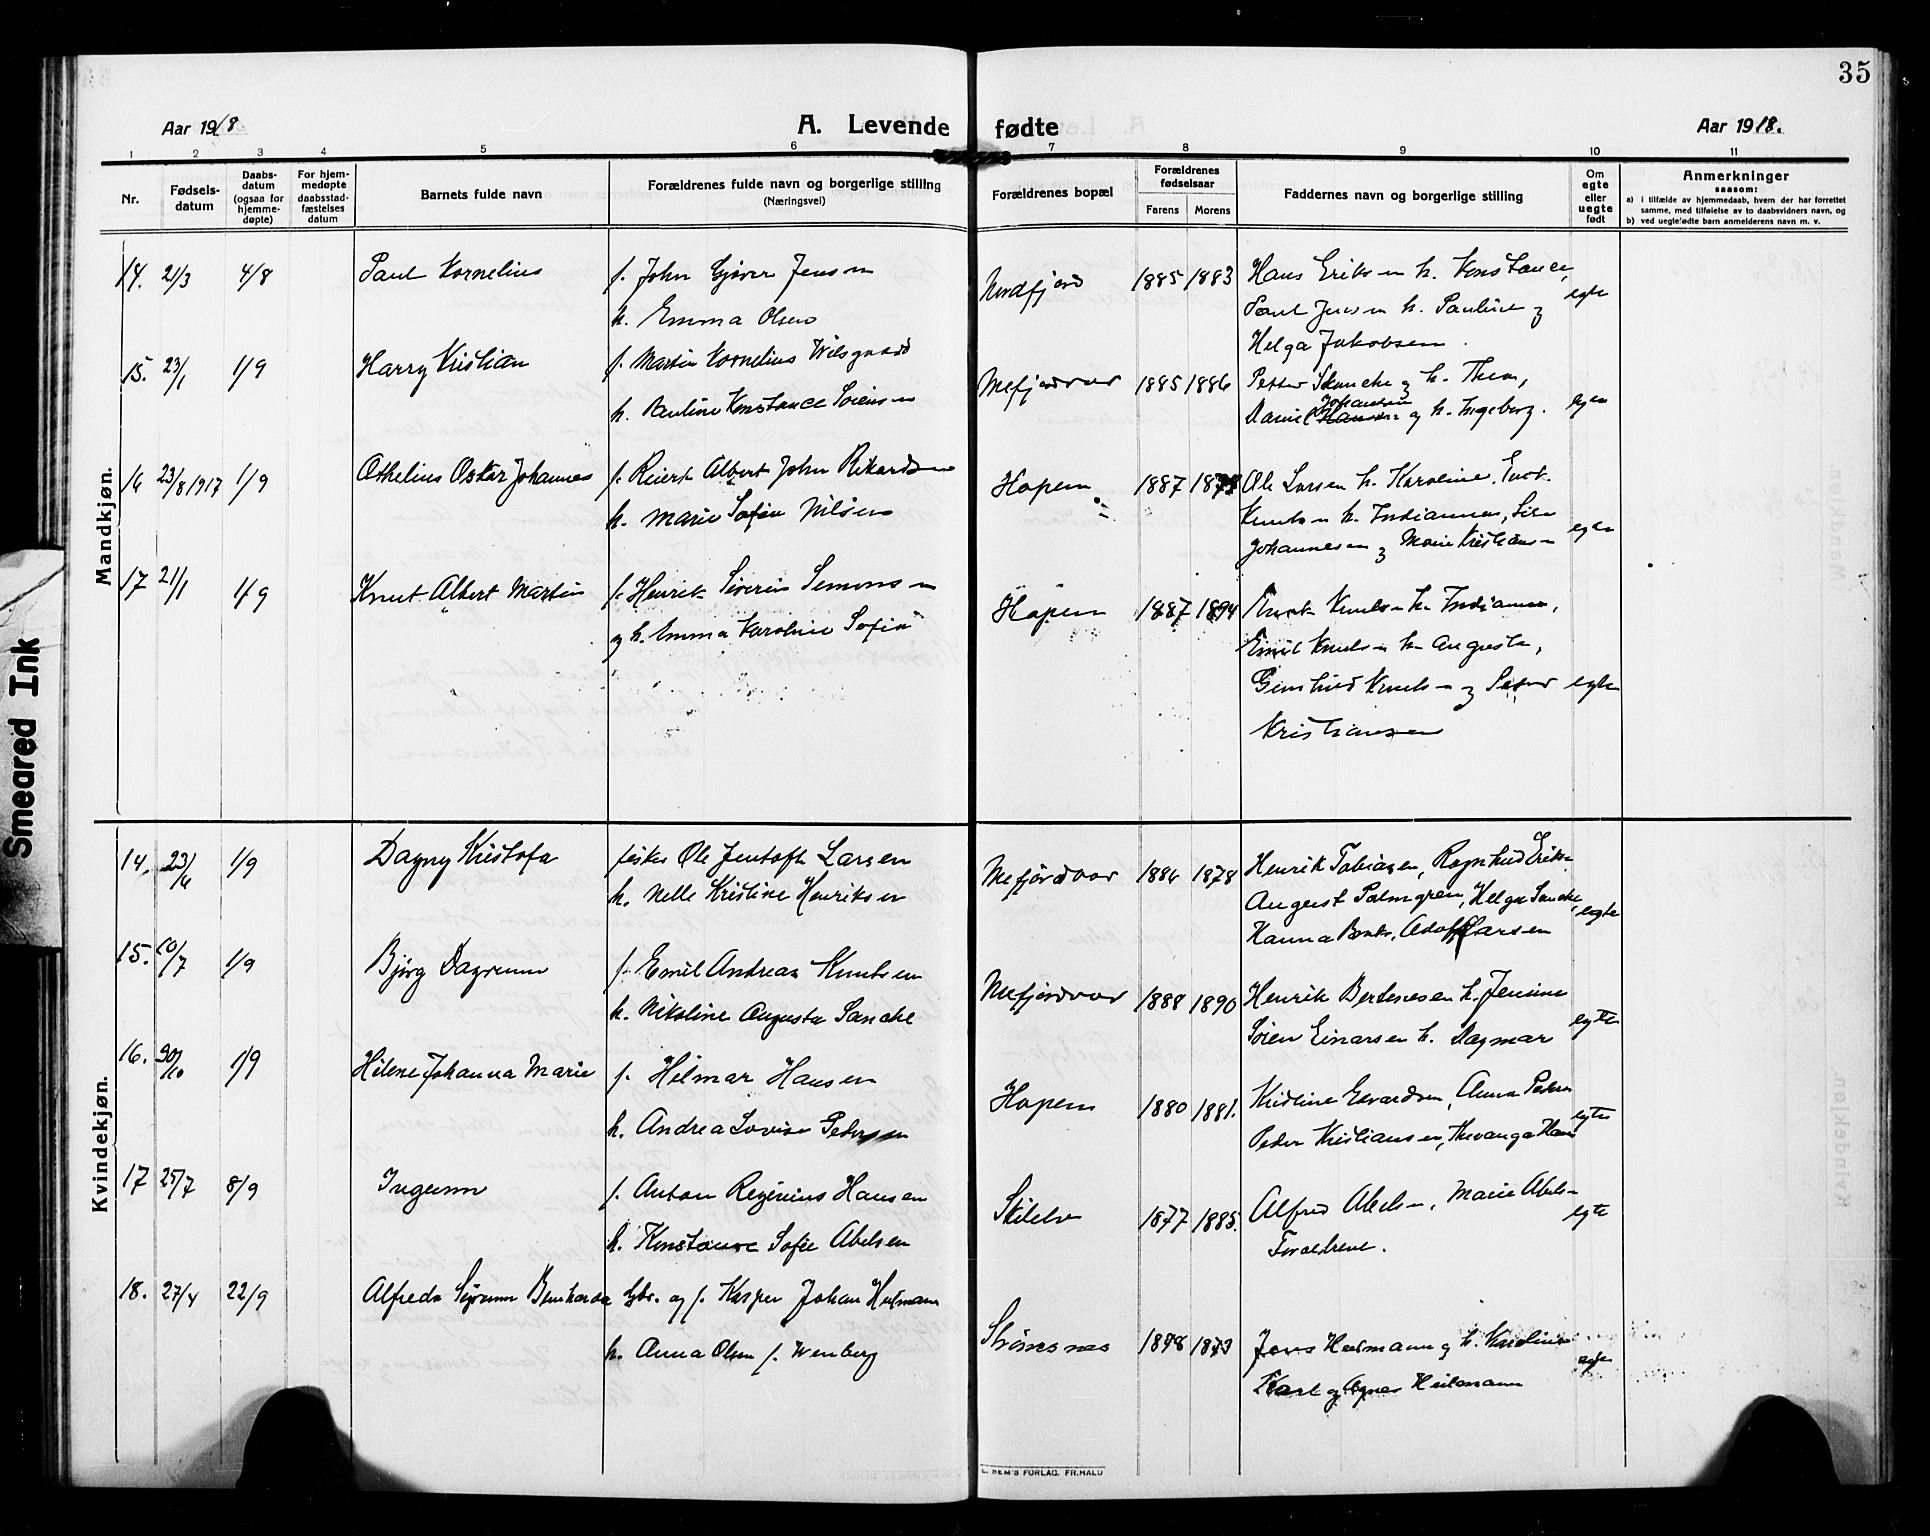 35
Aar 1918
A. Levende fødte
Aar 1918.
1 2 3 4 5 6 7 8 9 10 11
Nr.
Fødsels-
datum
Daabs-
datum
(ogsaa for
hjemme-
døpte)
For hjem-
medøpte
daabsstad-
fæstelses
datum
Barnets fulde navn
Forældrenes fulde navn og borgerlige stilling
(Næringsvei)
Forældrenes bopæl
Forældrenes
fødselsaar
Farens Morens
Faddernes navn og borgerlige stilling
Om
egte
eller
uegte
født
Anmerkninger
saasom:
a) i tilfælde av hjemmedaab, hvem der har forrettet
samme, med tilføielse av to daabsvidners navn, og
b) ved uegtefødte barn anmelderens navn m. v.
Mandkjøn.
14. 21/3 4/8 Paul Kornelius f. John Gjøver Jensen Nordfjord 1885 1883 Hans Eriksen h. Konstance,
h. Emma Olsen Paul Jensen h. Pauline og egte
Helga Jakobsen.
15. 23/1 1/9 Harry Kristian f. Martin Kornelius Wilsgaard Mefjordvær 1885 1886 Petter Skancke og h. Thea,
h. Pauline Konstance Sørensen Daniel Johansen Hansen og h. Ingeborg. egte
16 23/8 1917 1/9 Othelius Oskar Johannes f. Reiert Albert John Rikardsen Hopen 1887 Ole Larsen h. Karoline,
h. Marie Sofie Nilsen Knutsen h. Indianna,
Johannesen og Marie Kristiansen egte
17 21/1 1/9 Knut Albert Martin f. Henrik Severin Simonsen Hopen 1887 1894 Knutsen h. Indianna,
og h. Emma Karoline Sofie Emil Knutsen h. Augusta,
Knutsen og Peder egte
Kristiansen
Kvindekjøn.
14. 23/6 1/9 Dagny Kristofa fisker Ole Jentoft Larsen Mefjordvær 1886 1878 Henrik Tobiasen, Ragnhild Eriksen
h. Nelle Kristine Henriksen August Palmgren, Helga Sancke, egte
Hanna Berntsen, Adolf Larsen
15. 10/7 1/9 Bjørg Dagrunn f. Emil Andreas Knutsen Mefjordvær 1888 1890 Henrik Bertheusen h. Jensine
h. Nikoline Augusta Sancke Søren Einarsen h. Dagmar egte
16. 30/10 1/9 Helene Johanna Marie f. Hilmar Hansen Hopen 1880 1881. Kristine Edvardsen, Anna Peders
h. Andrea Lovise Pedersen Peder Kristiansen, Thevanga Hans egte
17 25/7 8/9 Ingunn f. Anton Reginius Hansen 1877 1885. Alfred Abelsen, Marie Abelsen
h. Konstance Sofie Abelsen Forældrene. egte
18. 27/4 22/9 Alfreda Sigrunn Bernharda Gbr. og f. Kasper Johan Heitmann Strømsnes Jens Heitmann og h. Karoline
h. Anna Olsen f. Wenberg Karl og Agnes Heitmann egte
E. SEM'S FORLAG. FR.HALD
Smeared Ink